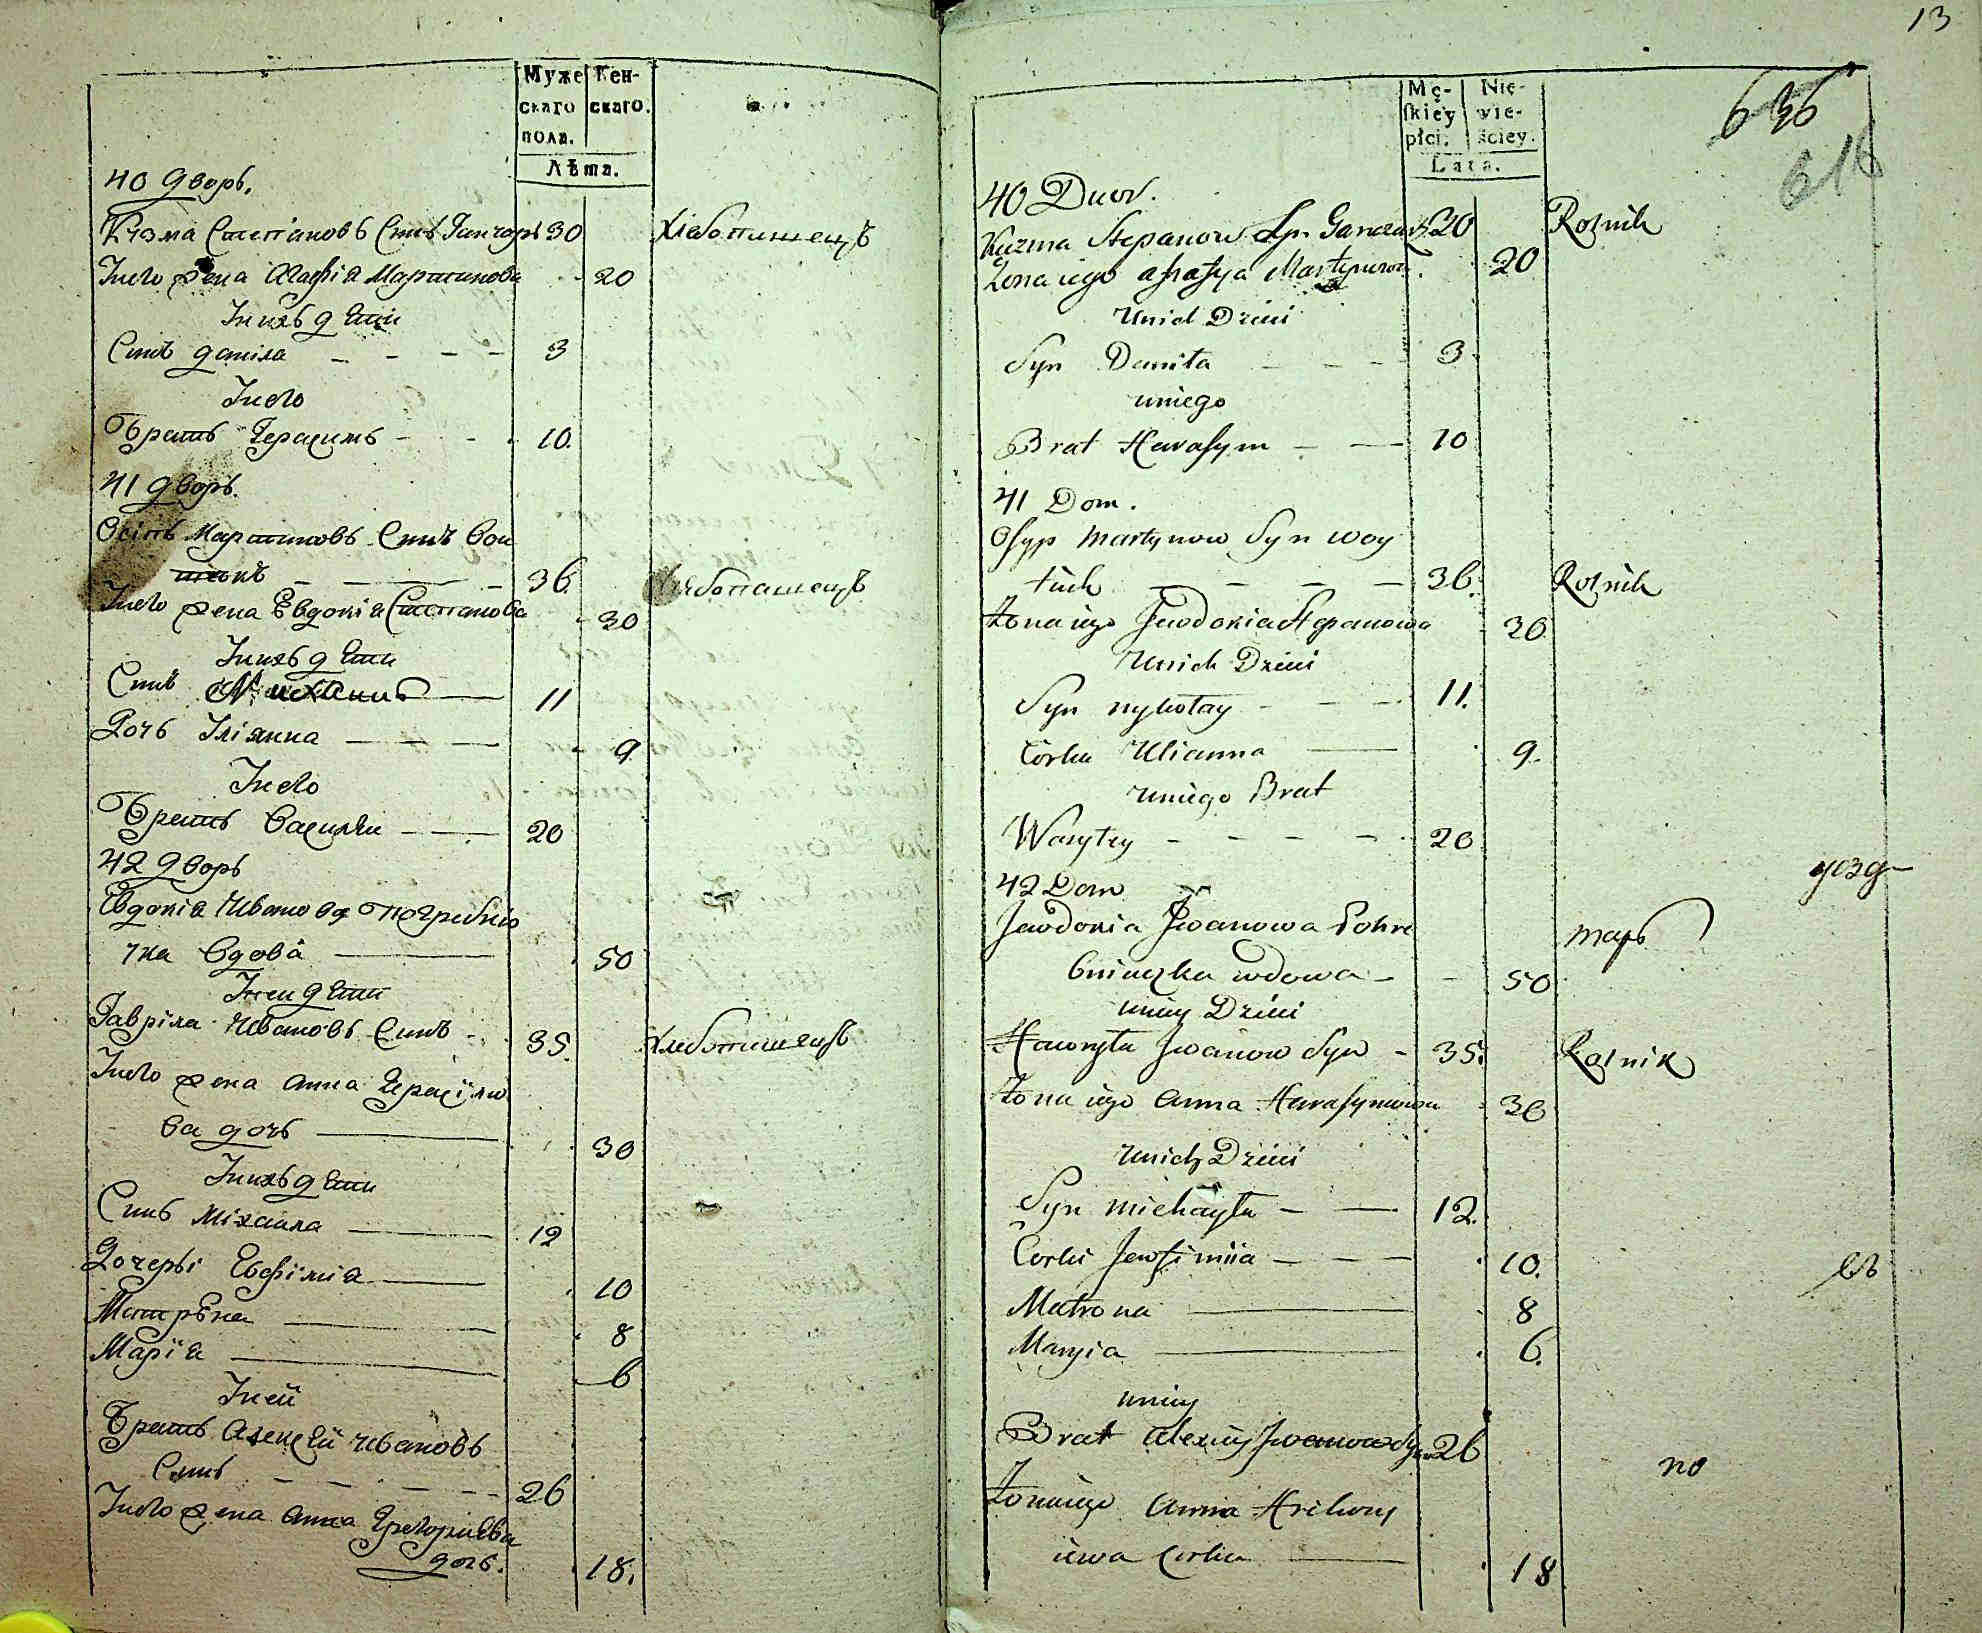 Муже
скаго
пола.
Жен-
скаго.
Лѣта.
40 дворъ.
Кузма Степановъ Синъ Ганчаръ 30 хлебопашецъ
 Інего жена Агафія Мартинова 20
Іунихъ дѣти
Синъ Даніла 3
Інего
Братъ Герасимъ 10.
41 дворъ.
Осіпъ Мартиновъ Синъ Вои
тюкъ 36. хлебопашецъ
Інего жена Евдокія Степанова 30
Іунихъ дѣти
Синъ 11
Дочъ Уліянна 9.
Інего
Братъ Василѣи 20
42 дворъ
Евдокія Ивановa Погребня
чка вдова 50
Інеи дѣти
Гавріла Ивановъ Синъ 35. хлебопашецъ
Інего жена Анна Герасімо
ва дочъ 30
Іунихъ дѣти
Синъ Міхаила 12
Дочеръі Евфімія 10
Матрѣна 8
Марія 6
Іней
Братъ Алексѣй Ивановъ
Синъ 26
Інего жена Анна Грегориева
дочъ. 18.
13
Mę-
skiey
płci.
Nie-
wie-
ściey.
Lata.
636
616
40 Dwor.
Kuzma Stepanow Syn Ganczar 20 Rolnik
Żona iego Ahafya Martynowa 20
Unich Dzieci
Syn Daniła 3
uniego
Brat Harasym 10
41 Dom.
Osyp Martynow Syn Woy
tiuk 36. Rolnik
Żona iego Jewdokia Stepanowa 30
Unich Dzieci
Syn Nykołay 11.
Corka Ulianna 9.
Uniego Brat
Wasyley 20
узд
42 Dom
Jewdokia Iwanowa Pohre
bniaczka wdowa 50
марь
uniey Dzieci
Hawryła Iwanow Syn 35. Rolnik
Żona iego Anna Harasymowa 30
Unich Dzieci
Syn Michayła 12.
Corki Jewfimiia 10.
въ
Matrona 8
Maryia 6.
uniey
Brat Alexiey Iwanow Syn 26
по
Żona iego Anna Hrihory
iewa Corka 18